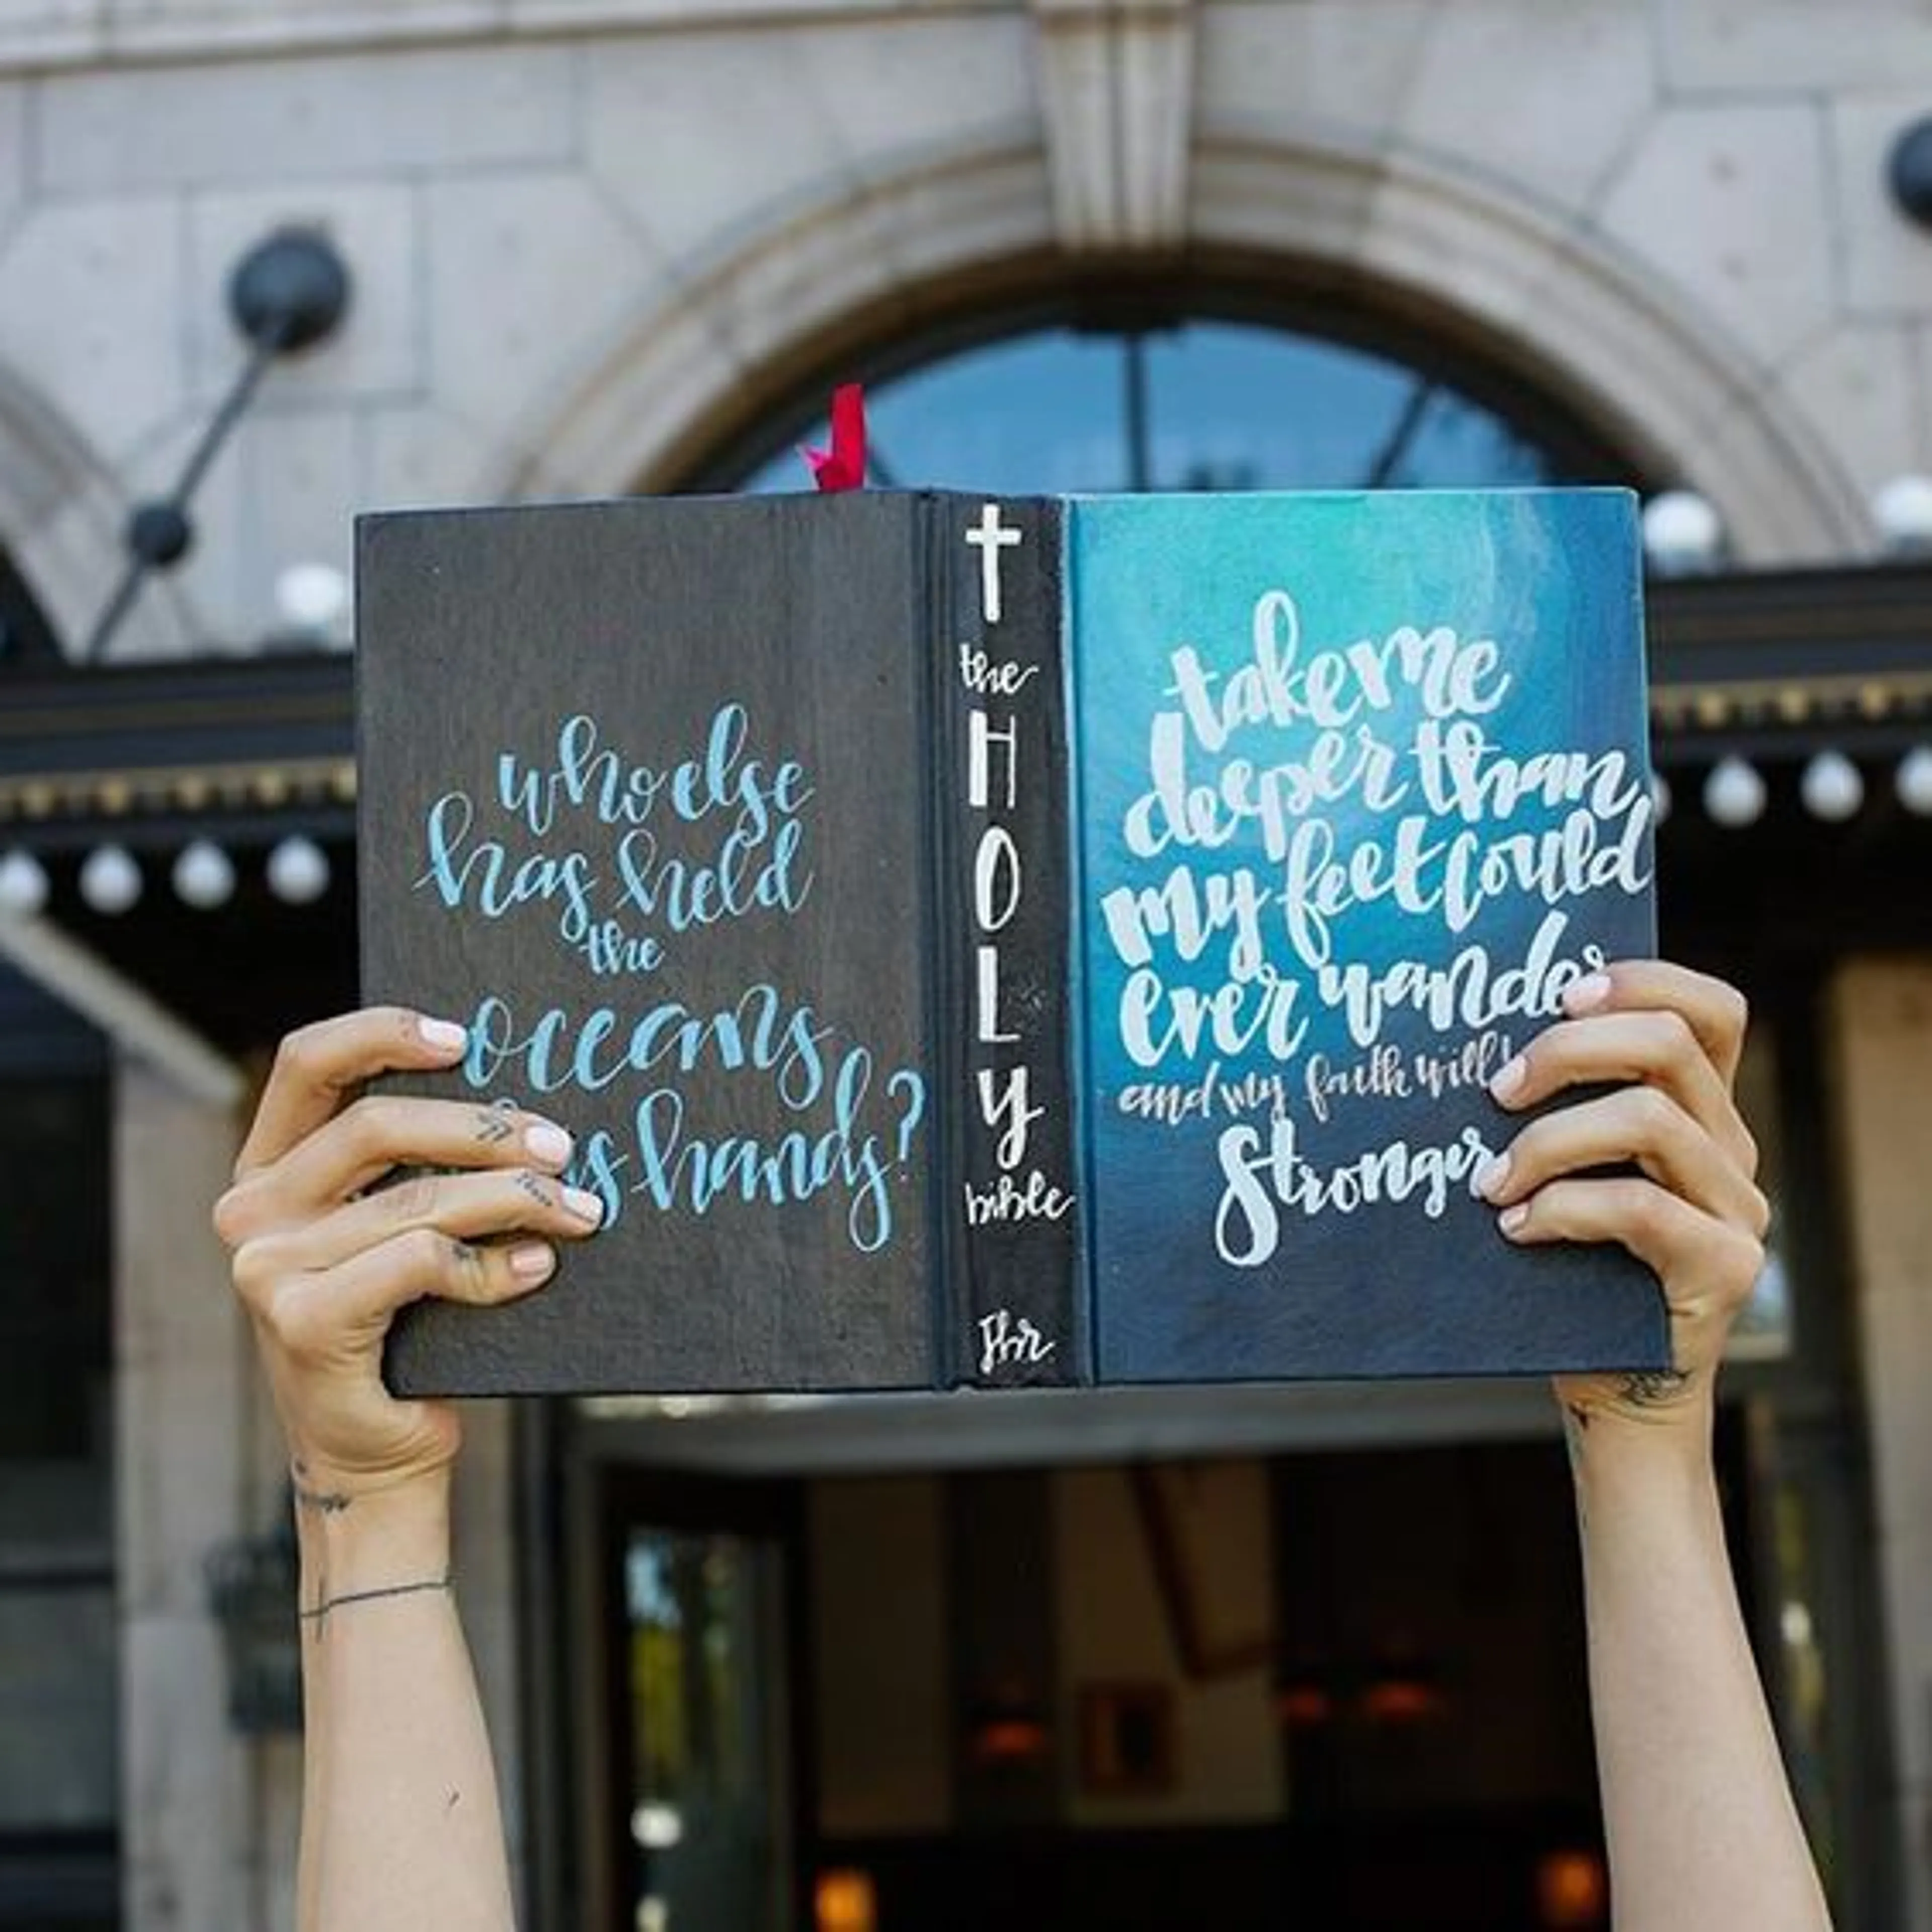 who else
has held
the
oceans
hands?
the
HOLY
bible
take me
deeper than
my feet could
ever wander
and my faith will
Stronger